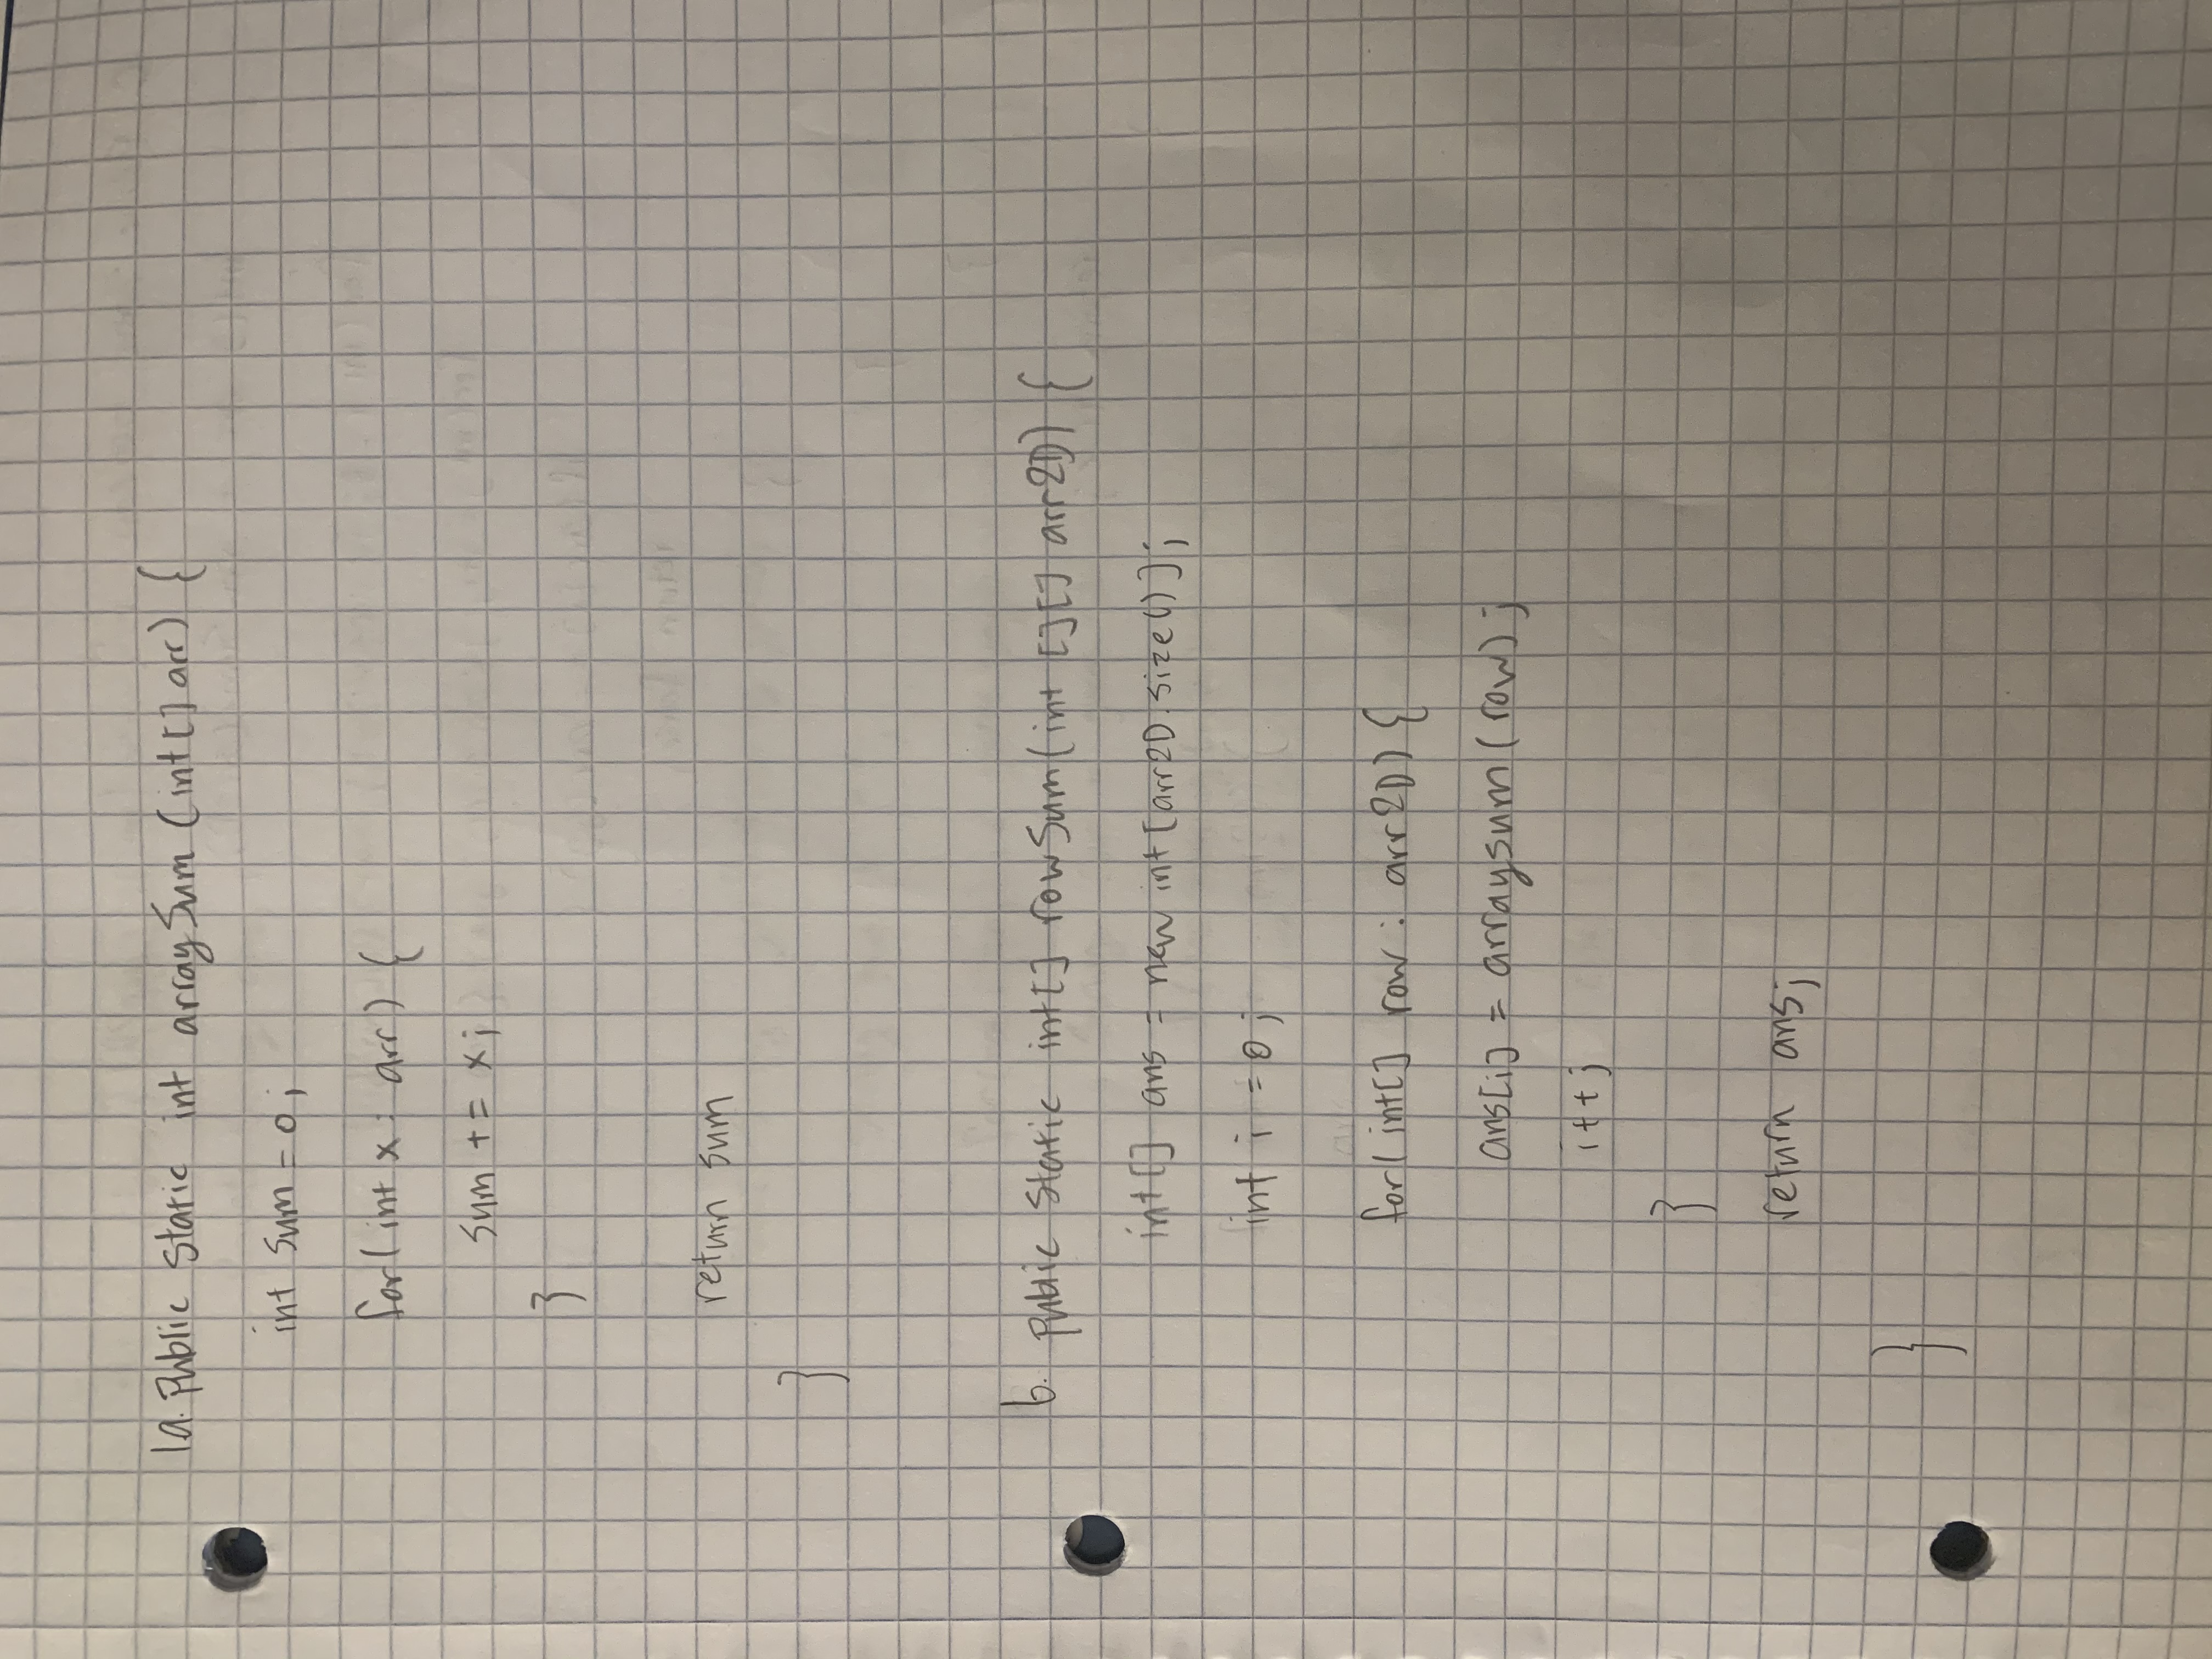 1a. Public static int arraySum (int[] arr) {
int sum = 0;
for( int x : arr) {
sum += x;
}
return sum
}
b. Public static int[] rowSum(int [][] arr2D) {
int[] ans = new int[arr2D.size()];
int i = 0;
for( int[] row : arr2D) {
ans[i] = arraysum(row);
i++;
}
return ans;
}